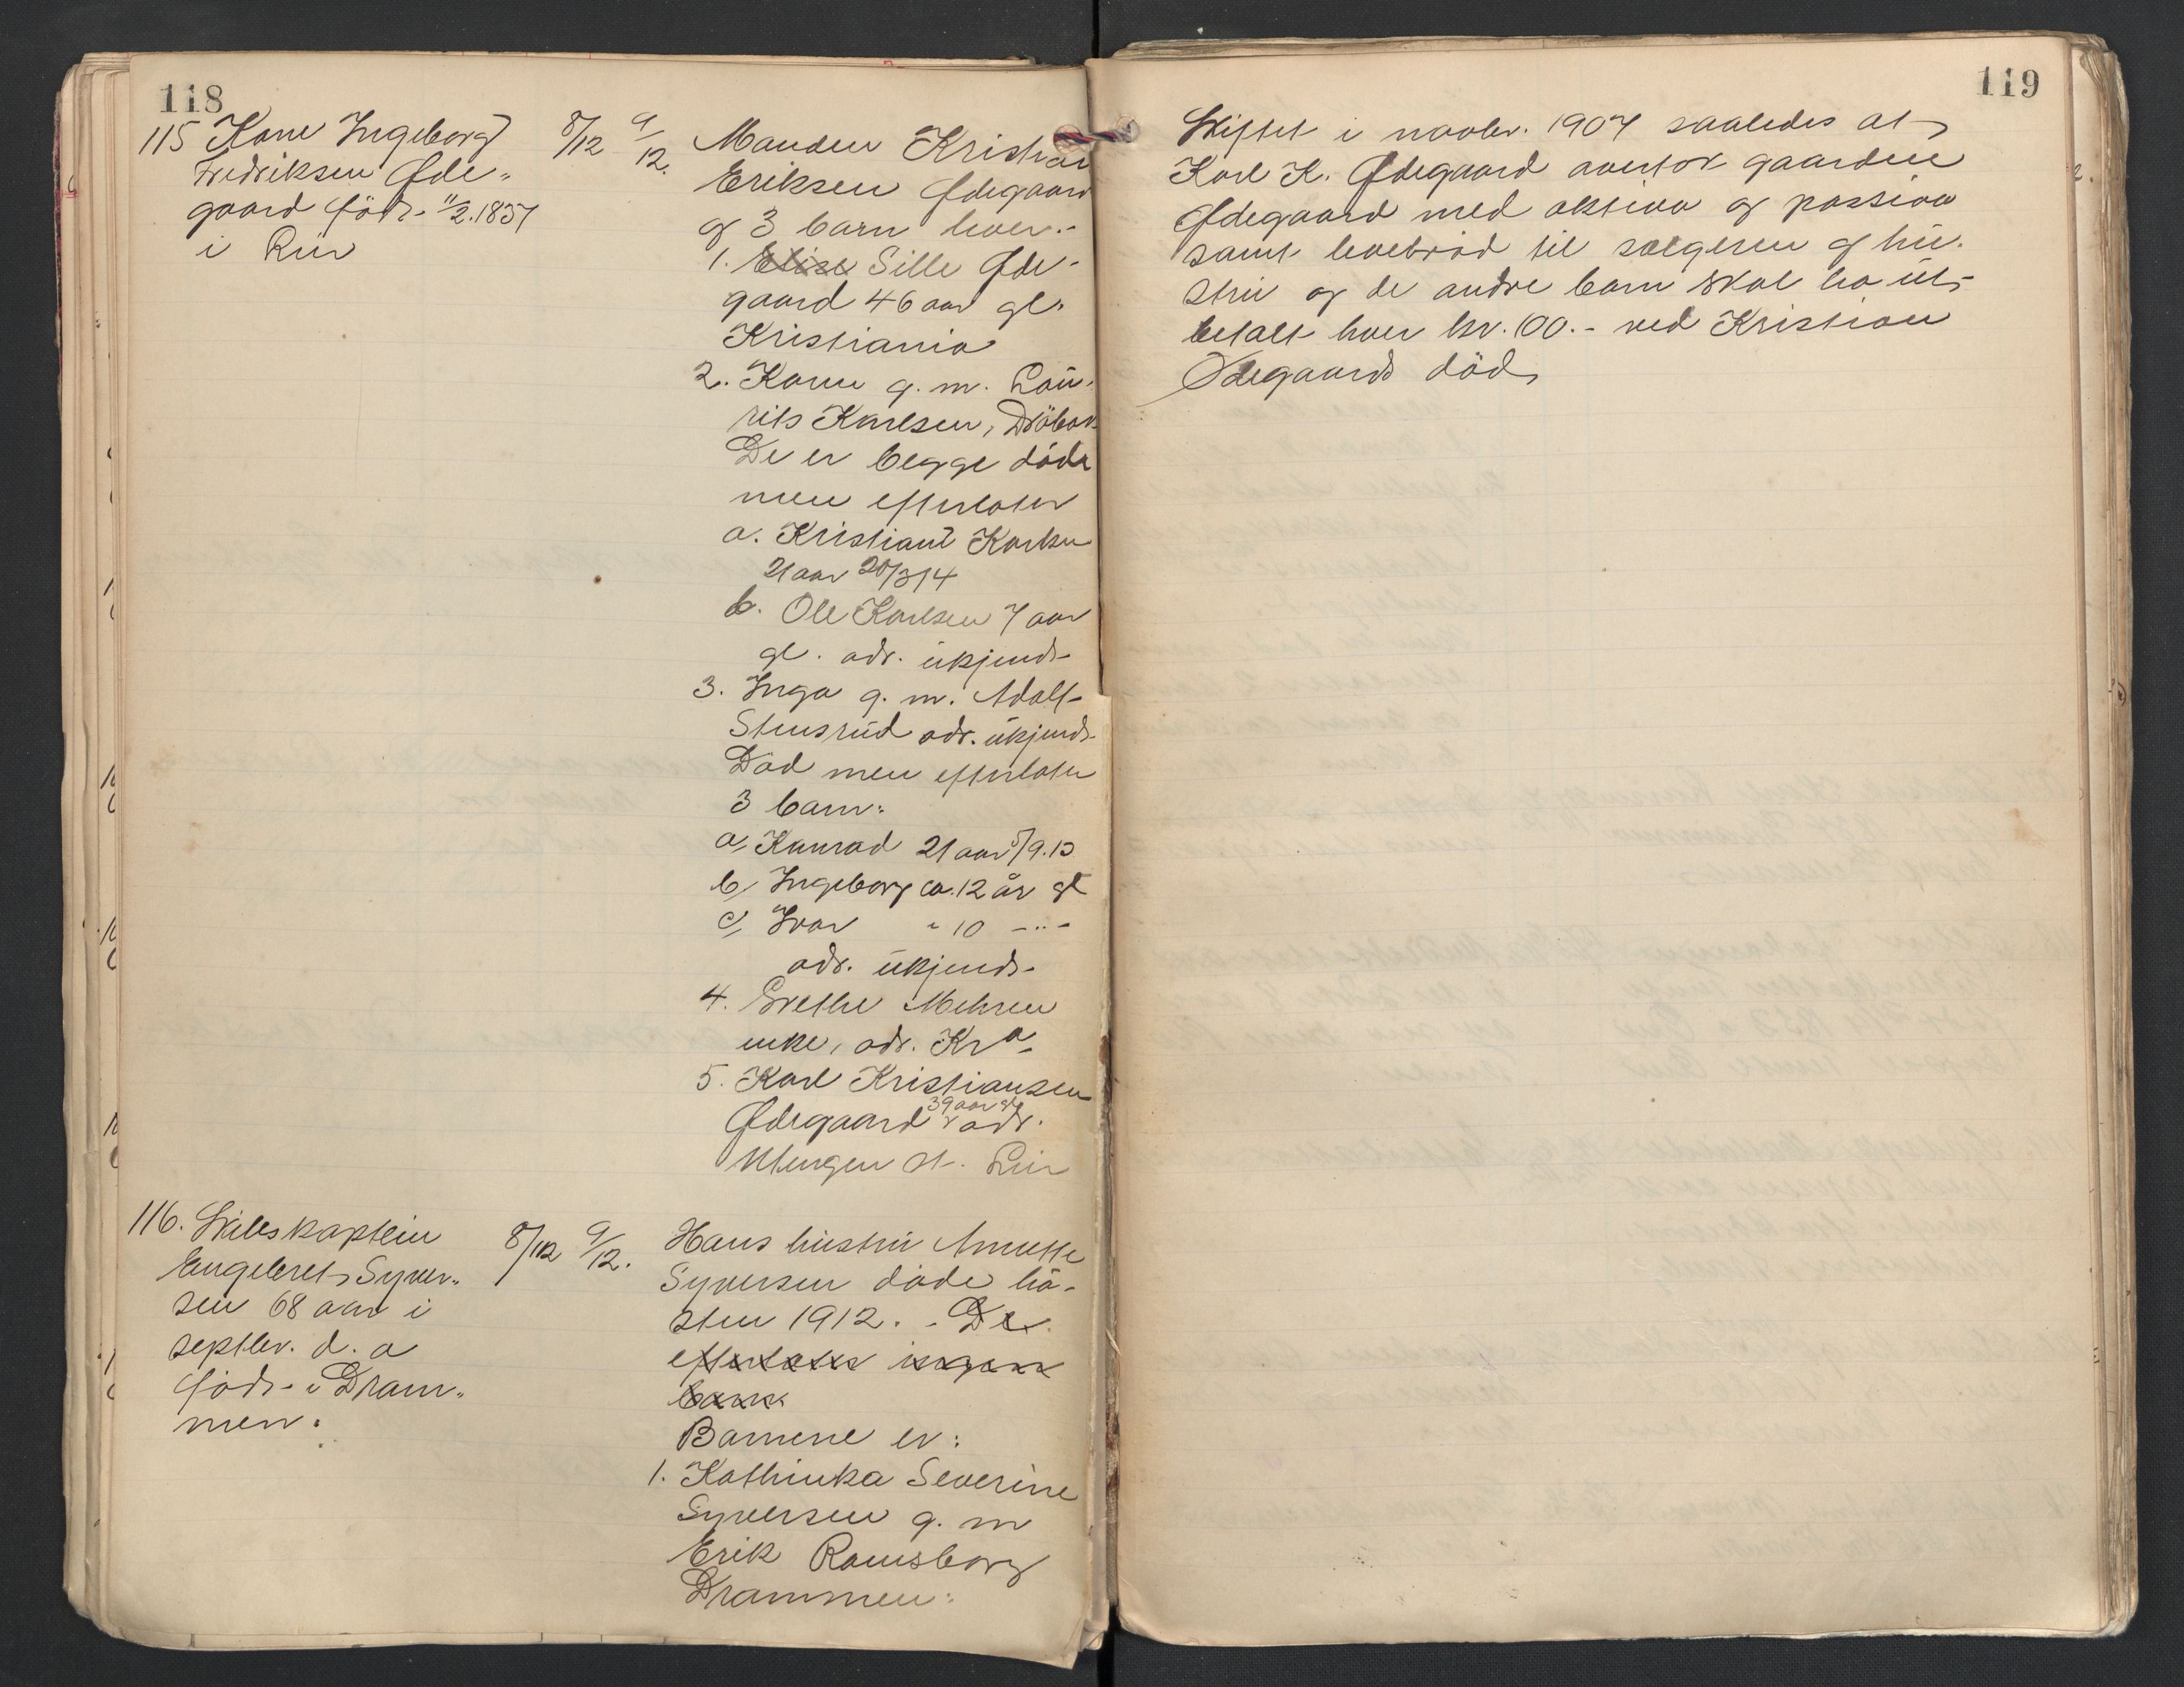 118
115 Kone Ingeborg
Fredriksen Øde„
gaard född 11/2.1837
i Rür
8/12 9/12.
Manden Kristian
Eriksen Ødegaard
og 3 barn hver.-
1. Elise Sille Øde-
gaard 46 aar gl.
Kristiania
2. Karen g. m. Laü-
rits Karlsen, Dröbak
De er begge döde
men efterlater
a. Kristian Karlsen
21 aar 20/3 14
b. Ole Karlsen 7 aar
gl. adr. ükjendt
3. Inga g. m. Adolf
Stensrüd adr. ükjendt
Död men efterlater
3 barn:
a, Konrad 21 aar 5/9.13
b, Ingeborg ca. 12 år gl
c, Ivar „ 10 -„-
adr. ükjendt
4. Grethe Mehren
enke, adr. Kra
5. Karl Kristiansen
Ødegaard 39 aar gl adr.
Klengen st. Lier
116. Skibskaptein
Engebret Syver„
sen 68 aar i
septbr. d. a
född i Dram„
men.
8/12 9/12.
Hans hüstrü Annette
Syversen döde hö-
sten 1912. - De
efterlater ingen
barn
Barnene er:
1. Kathinka Severine
Syversen g. m
Erik Ramsborg
Drammen:
119
Skiftet i novbr. 1907 saaledes at
Karl K. Ødegaard overtok gaarden
Ødegaard med aktiva og passiva
samt levebröd til sælgeren og hü-
strü og de andre barn skal ha üt-
betalt hver kr. 100.- ved Kristian
Ødegaards död